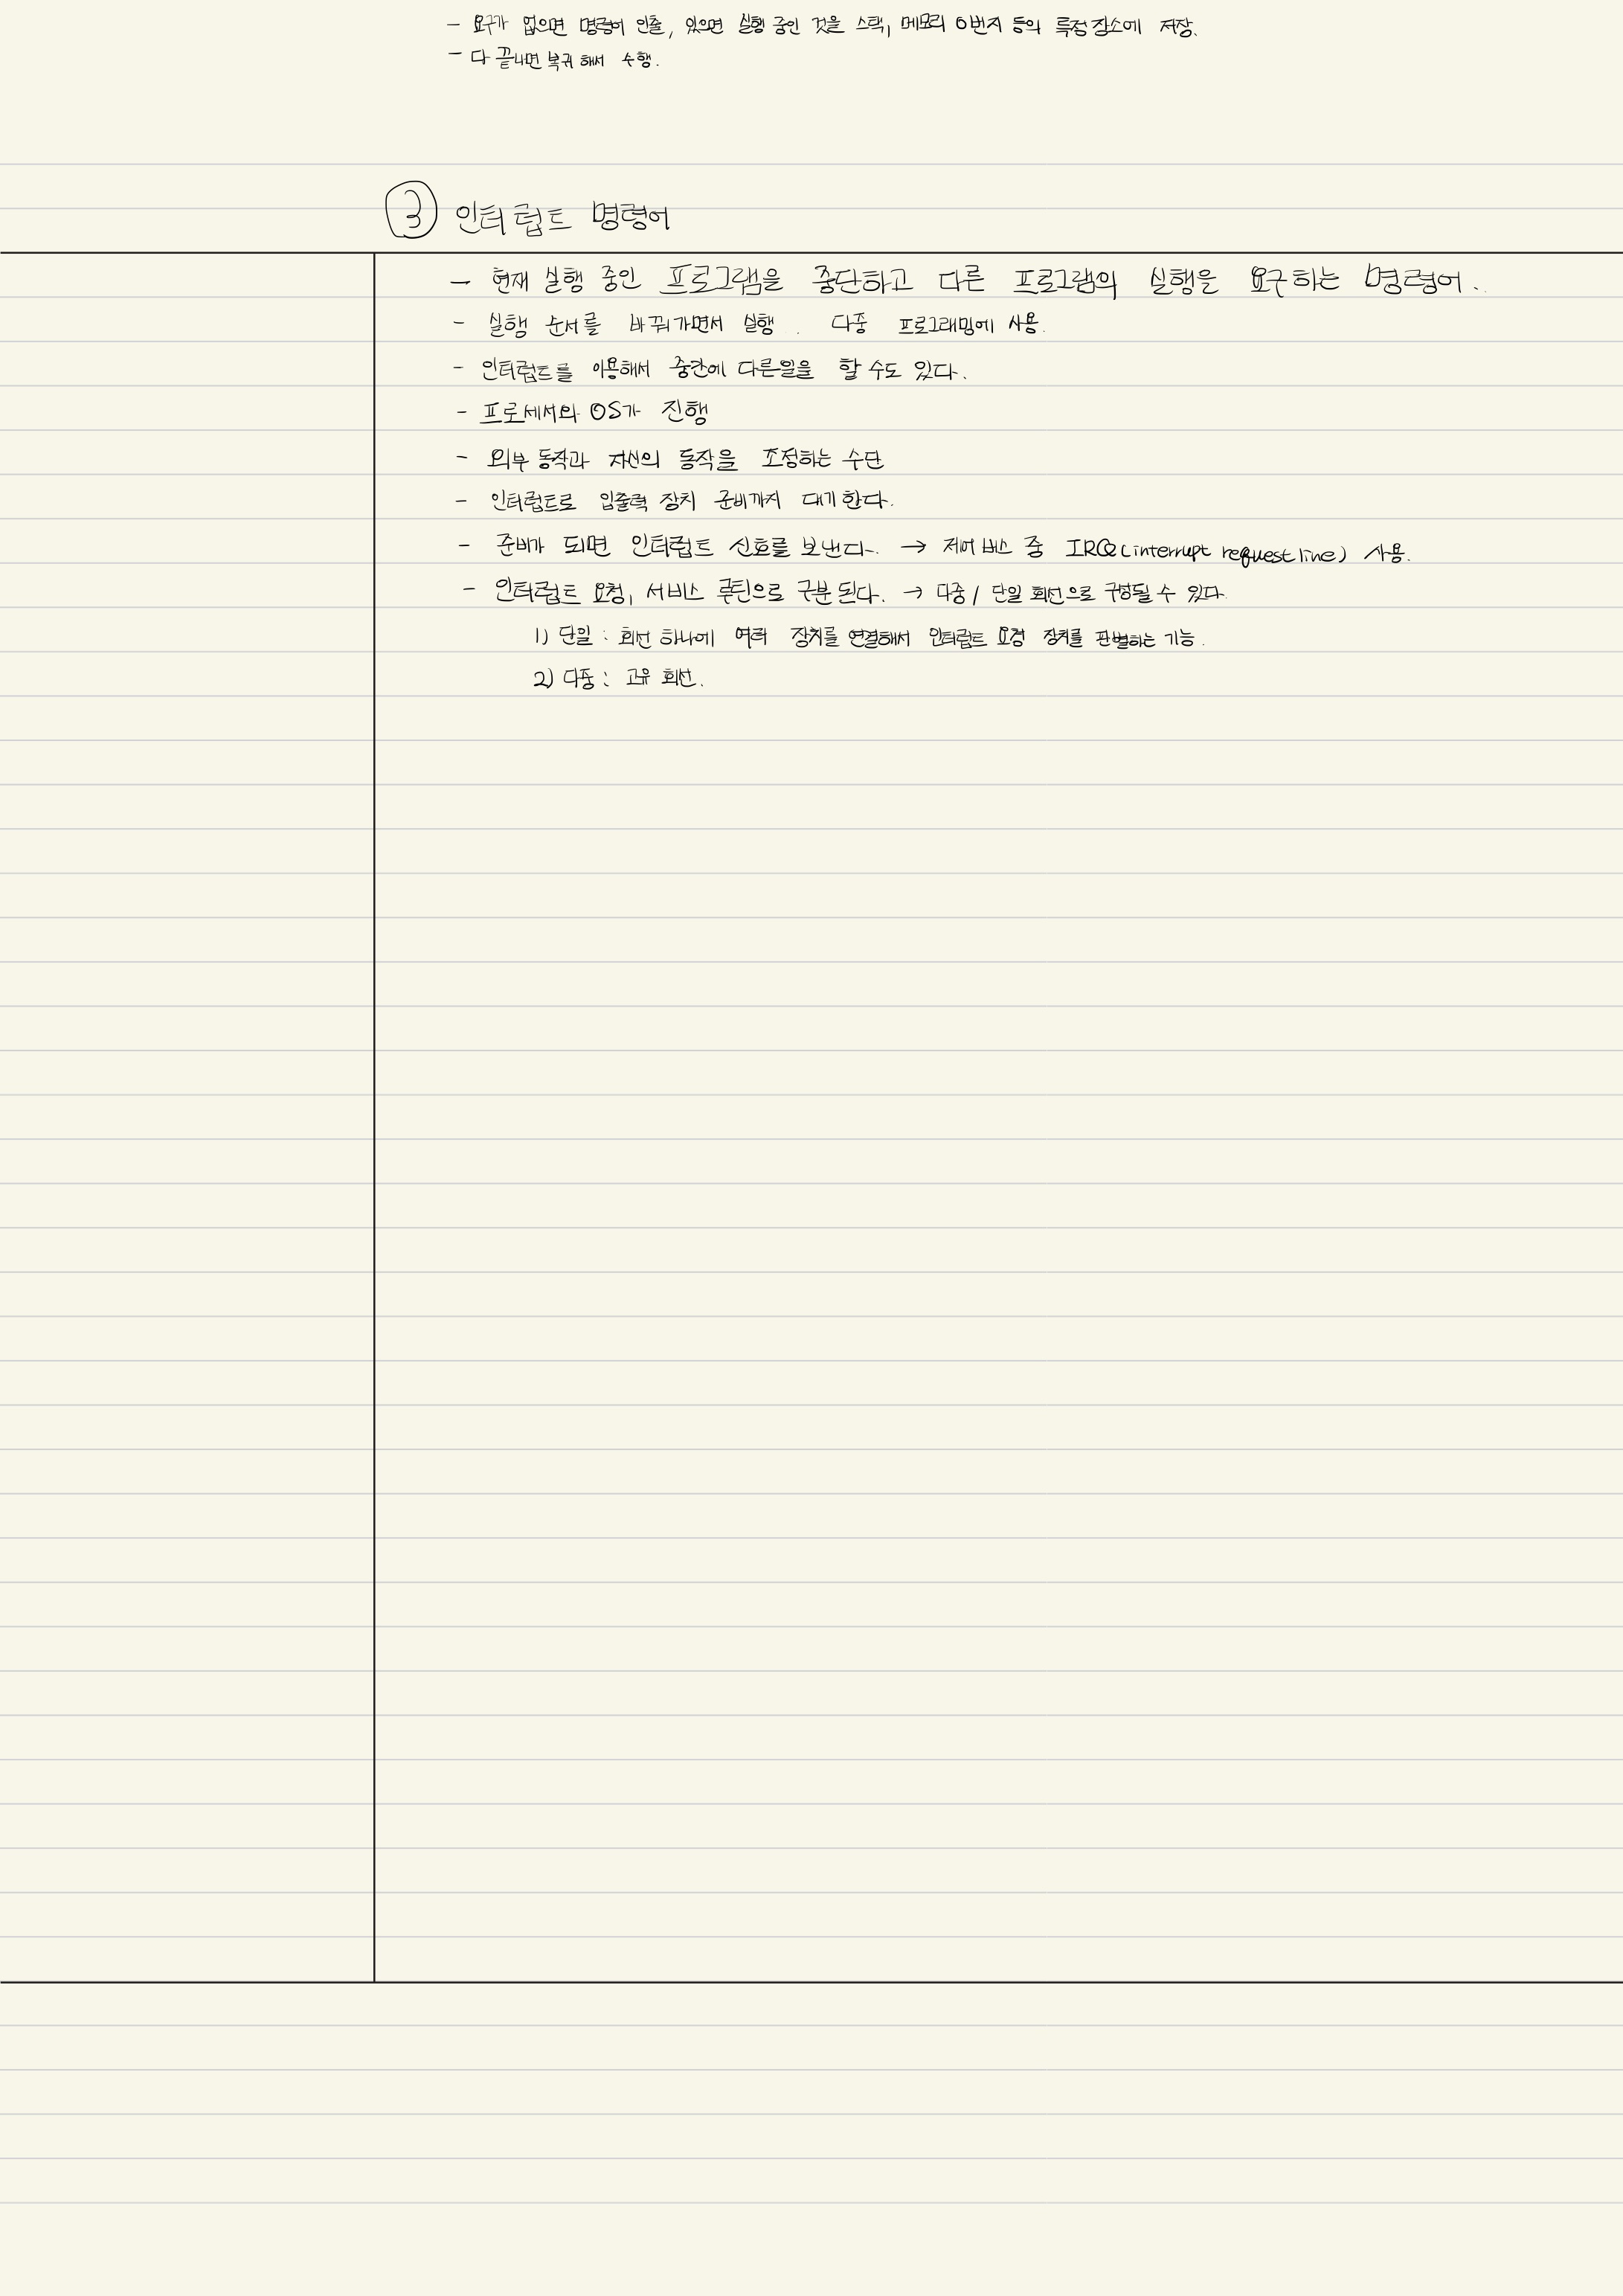 - 요구가 없으면 명령어 인출, 있으면 실행 중인 것을 스택, 메모리 0번지 등의 특정장소에 저장.
- 다 끝나면 복귀해서 수행.
③ 인터럽트 명령어
- 현재 실행 중인 프로그램을 중단하고 다른 프로그램의 실행을 요구하는 명령어.
- 실행 순서를 바꿔가면서 실행. 다중 프로그래밍에 사용.
- 인터럽트를 이용해서 중간에 다른일을 할 수도 있다.
- 프로세서와 OS가 진행
- 외부 동작과 자신의 동작을 조정하는 수단
- 인터럽트로 입출력 장치 준비까지 대기한다.
- 준비가 되면 인터럽트 신호를 보낸다. → 제어 버스 중 IRQ(interrupt request line) 사용.
- 인터럽트 요청, 서비스 루틴으로 구분된다. → 다중 / 단일 회선으로 구성될 수 있다.
1) 단일 : 회선 하나에 여러 장치를 연결해서 인터럽트 요청 장치를 판별하는 기능.
2) 다중 : 고유 회선.